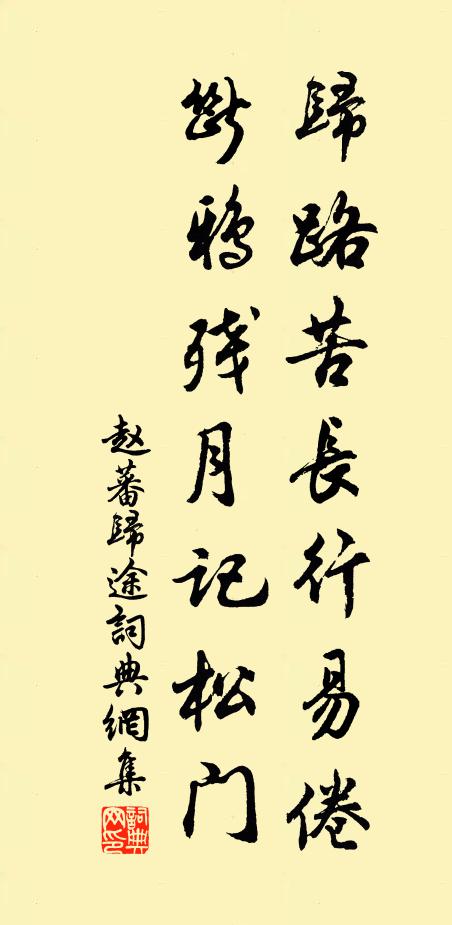 歸路苦長行易倦
斷鴉殘月記松门
赵蕃歸途詞典網集
詞典
网印